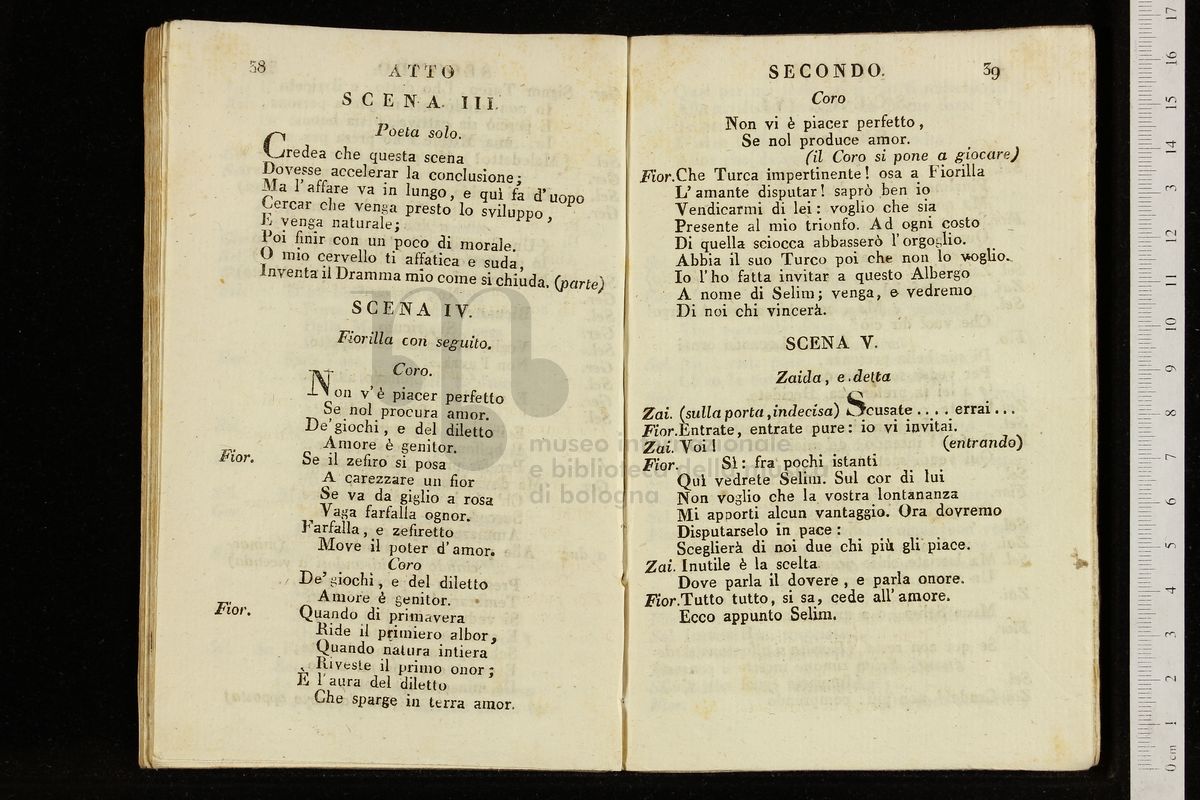 38
ATTO
SCENA III.
Poeta solo.
Credea che questa scena
Dovesse accelerar la conclusione;
Ma l'affare va in lungo, e quì fa d'uopo
Cercar che venga presto lo sviluppo,
E venga naturale;
Poi finir con un poco di morale.
O mio cervello ti affatica e suda,
Inventa il Dramma mio come si chiuda. (parte)
SCENA IV.
Fiorilla con seguito.
Coro.
Non v'è piacer perfetto
Se nol procura amor.
De' giochi, e del diletto
Amore è genitor.
Fior. Se il zefiro si posa
A carezzare un fior
Se va da giglio a rosa
Vaga farfalla ognor.
Farfalla, e zefiretto
Move il poter d'amor.
Coro
De' giochi, e del diletto
Amore è genitor.
Fior. Quando di primavera
Ride il primiero albor,
Quando natura intiera
Riveste il primo onor;
È l'aura del diletto
Che sparge in terra amor.
SECONDO. 39
Coro
Non vi è piacer perfetto,
Se nol produce amor.
(il Coro si pone a giocare)
Fior. Che Turca impertinente! osa a Fiorilla
L'amante disputar! saprò ben io
Vendicarmi di lei: voglio che sia
Presente al mio trionfo. Ad ogni costo
Di quella sciocca abbasserò l'orgoglio.
Abbia il suo Turco poi che non lo voglio.
Io l'ho fatta invitar a questo Albergo
A nome di Selim; venga, e vedremo
Di noi chi vincerà.
SCENA V.
Zaida, e detta
Zai. (sulla porta, indecisa) Scusate .... errai...
Fior. Entrate, entrate pure: io vi invitai.
Zai. Voi! (entrando)
Fior. Sì: fra pochi istanti
Quì vedrete Selim. Sul cor di lui
Non voglio che la vostra lontananza
Mi apporti alcun vantaggio. Ora dovremo
Disputarselo in pace:
Sceglierà di noi due chi più gli piace.
Zai. Inutile è la scelta
Dove parla il dovere, e parla onore.
Fior. Tutto tutto, si sa, cede all'amore.
Ecco appunto Selim.
museo internazionale
e biblioteca della musica
di bologna
0 cm 1 2 3 4 5 6 7 8 9 10 11 12 13 14 15 16 17